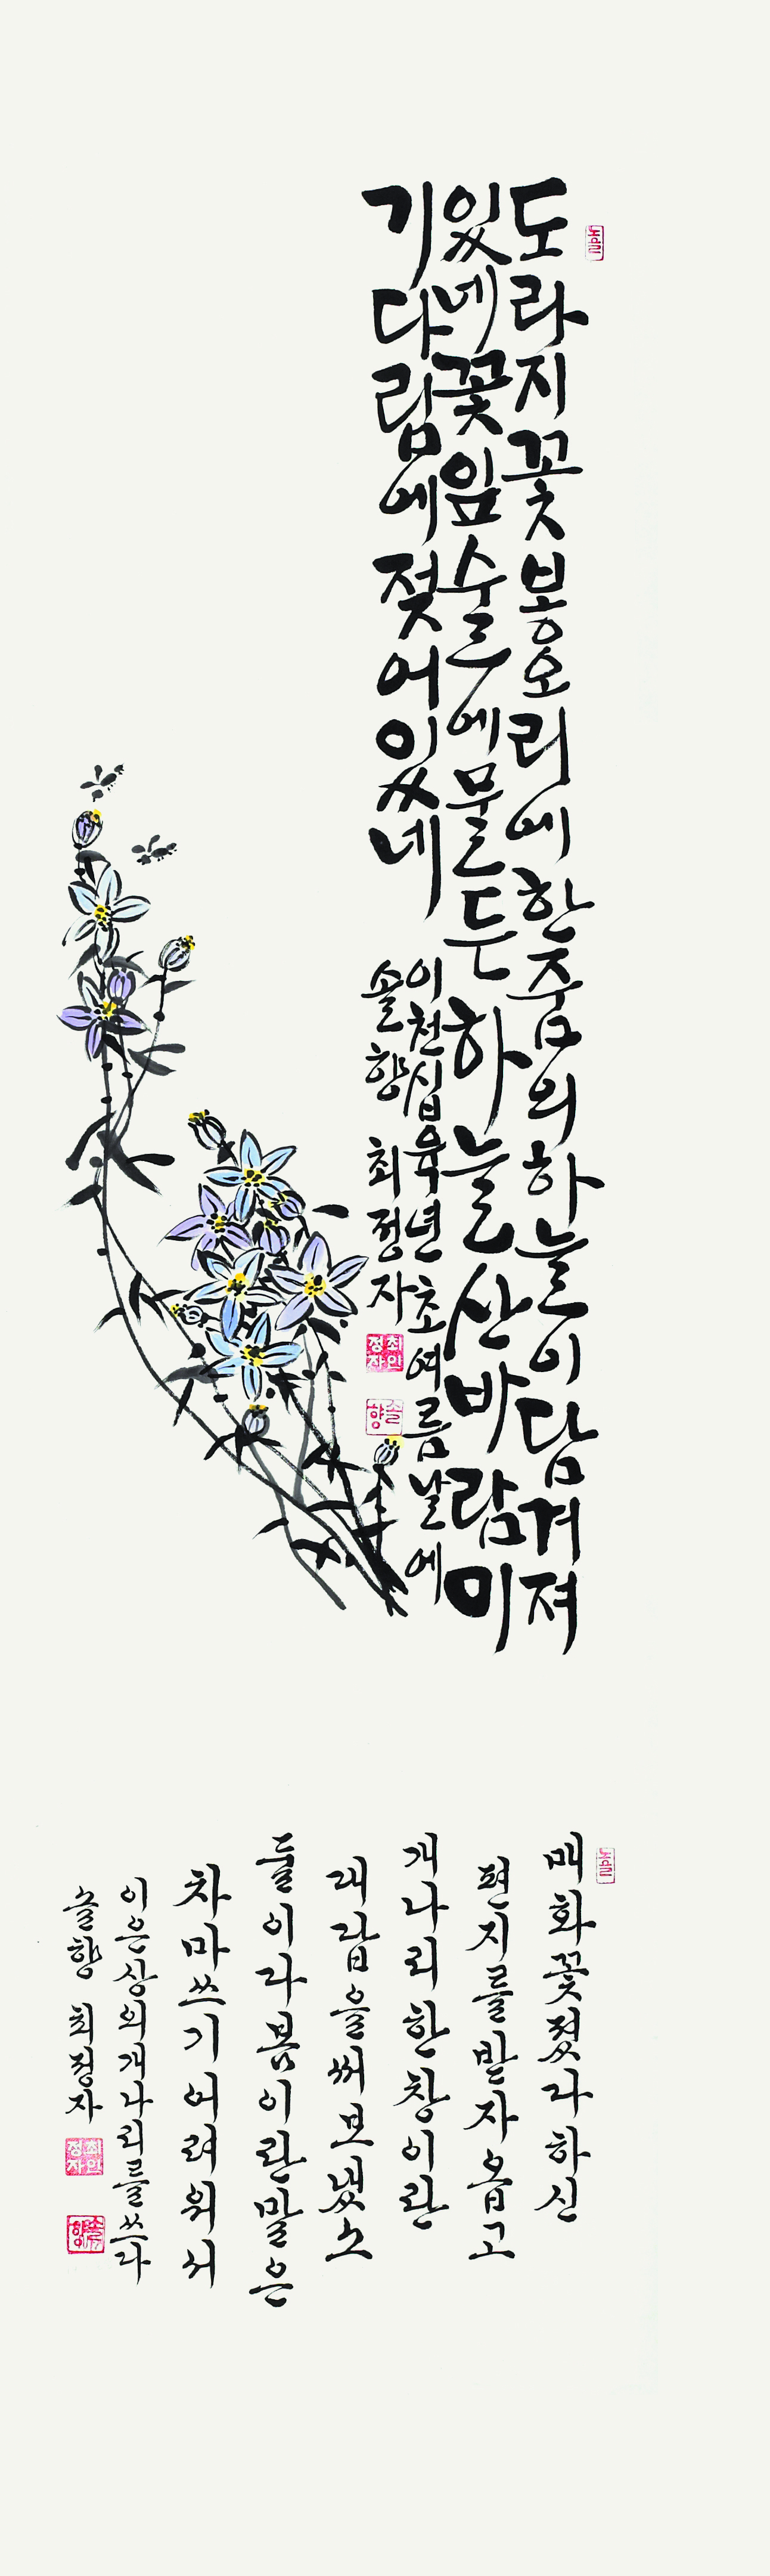 도라지꽃봉오리에한줌의하늘이담겨져
있네꽃입술에물든하늘산바람이
기다림에젖어있네
이천십육년초여름날에
솔향 최정자
최인정자
솔향
매화꽃졌다하신
편지를받자옵고
개나리한창이란
대답을써보냈소
둘이다봄이란말은
차마쓰기어려워서
이은상의개나리를쓰다
솔향 최정자
최인정자